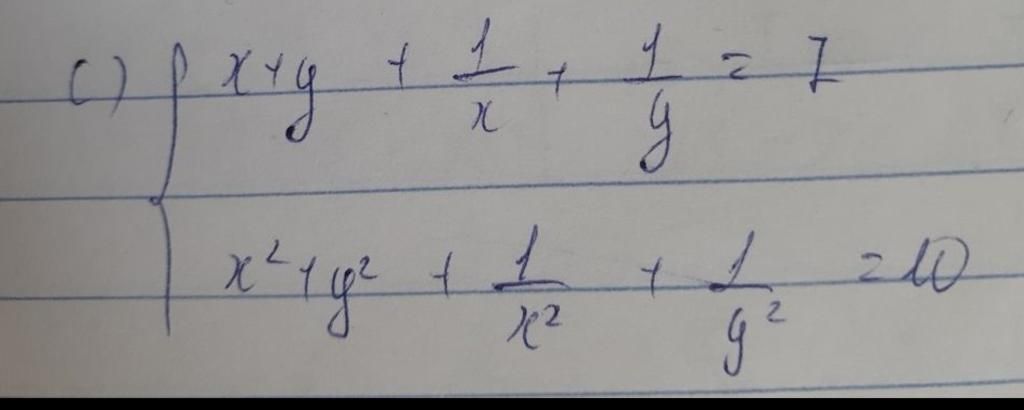 c) { x+y + 1/x + 1/y = 7
x² + y² + 1/x² + 1/y² = 10